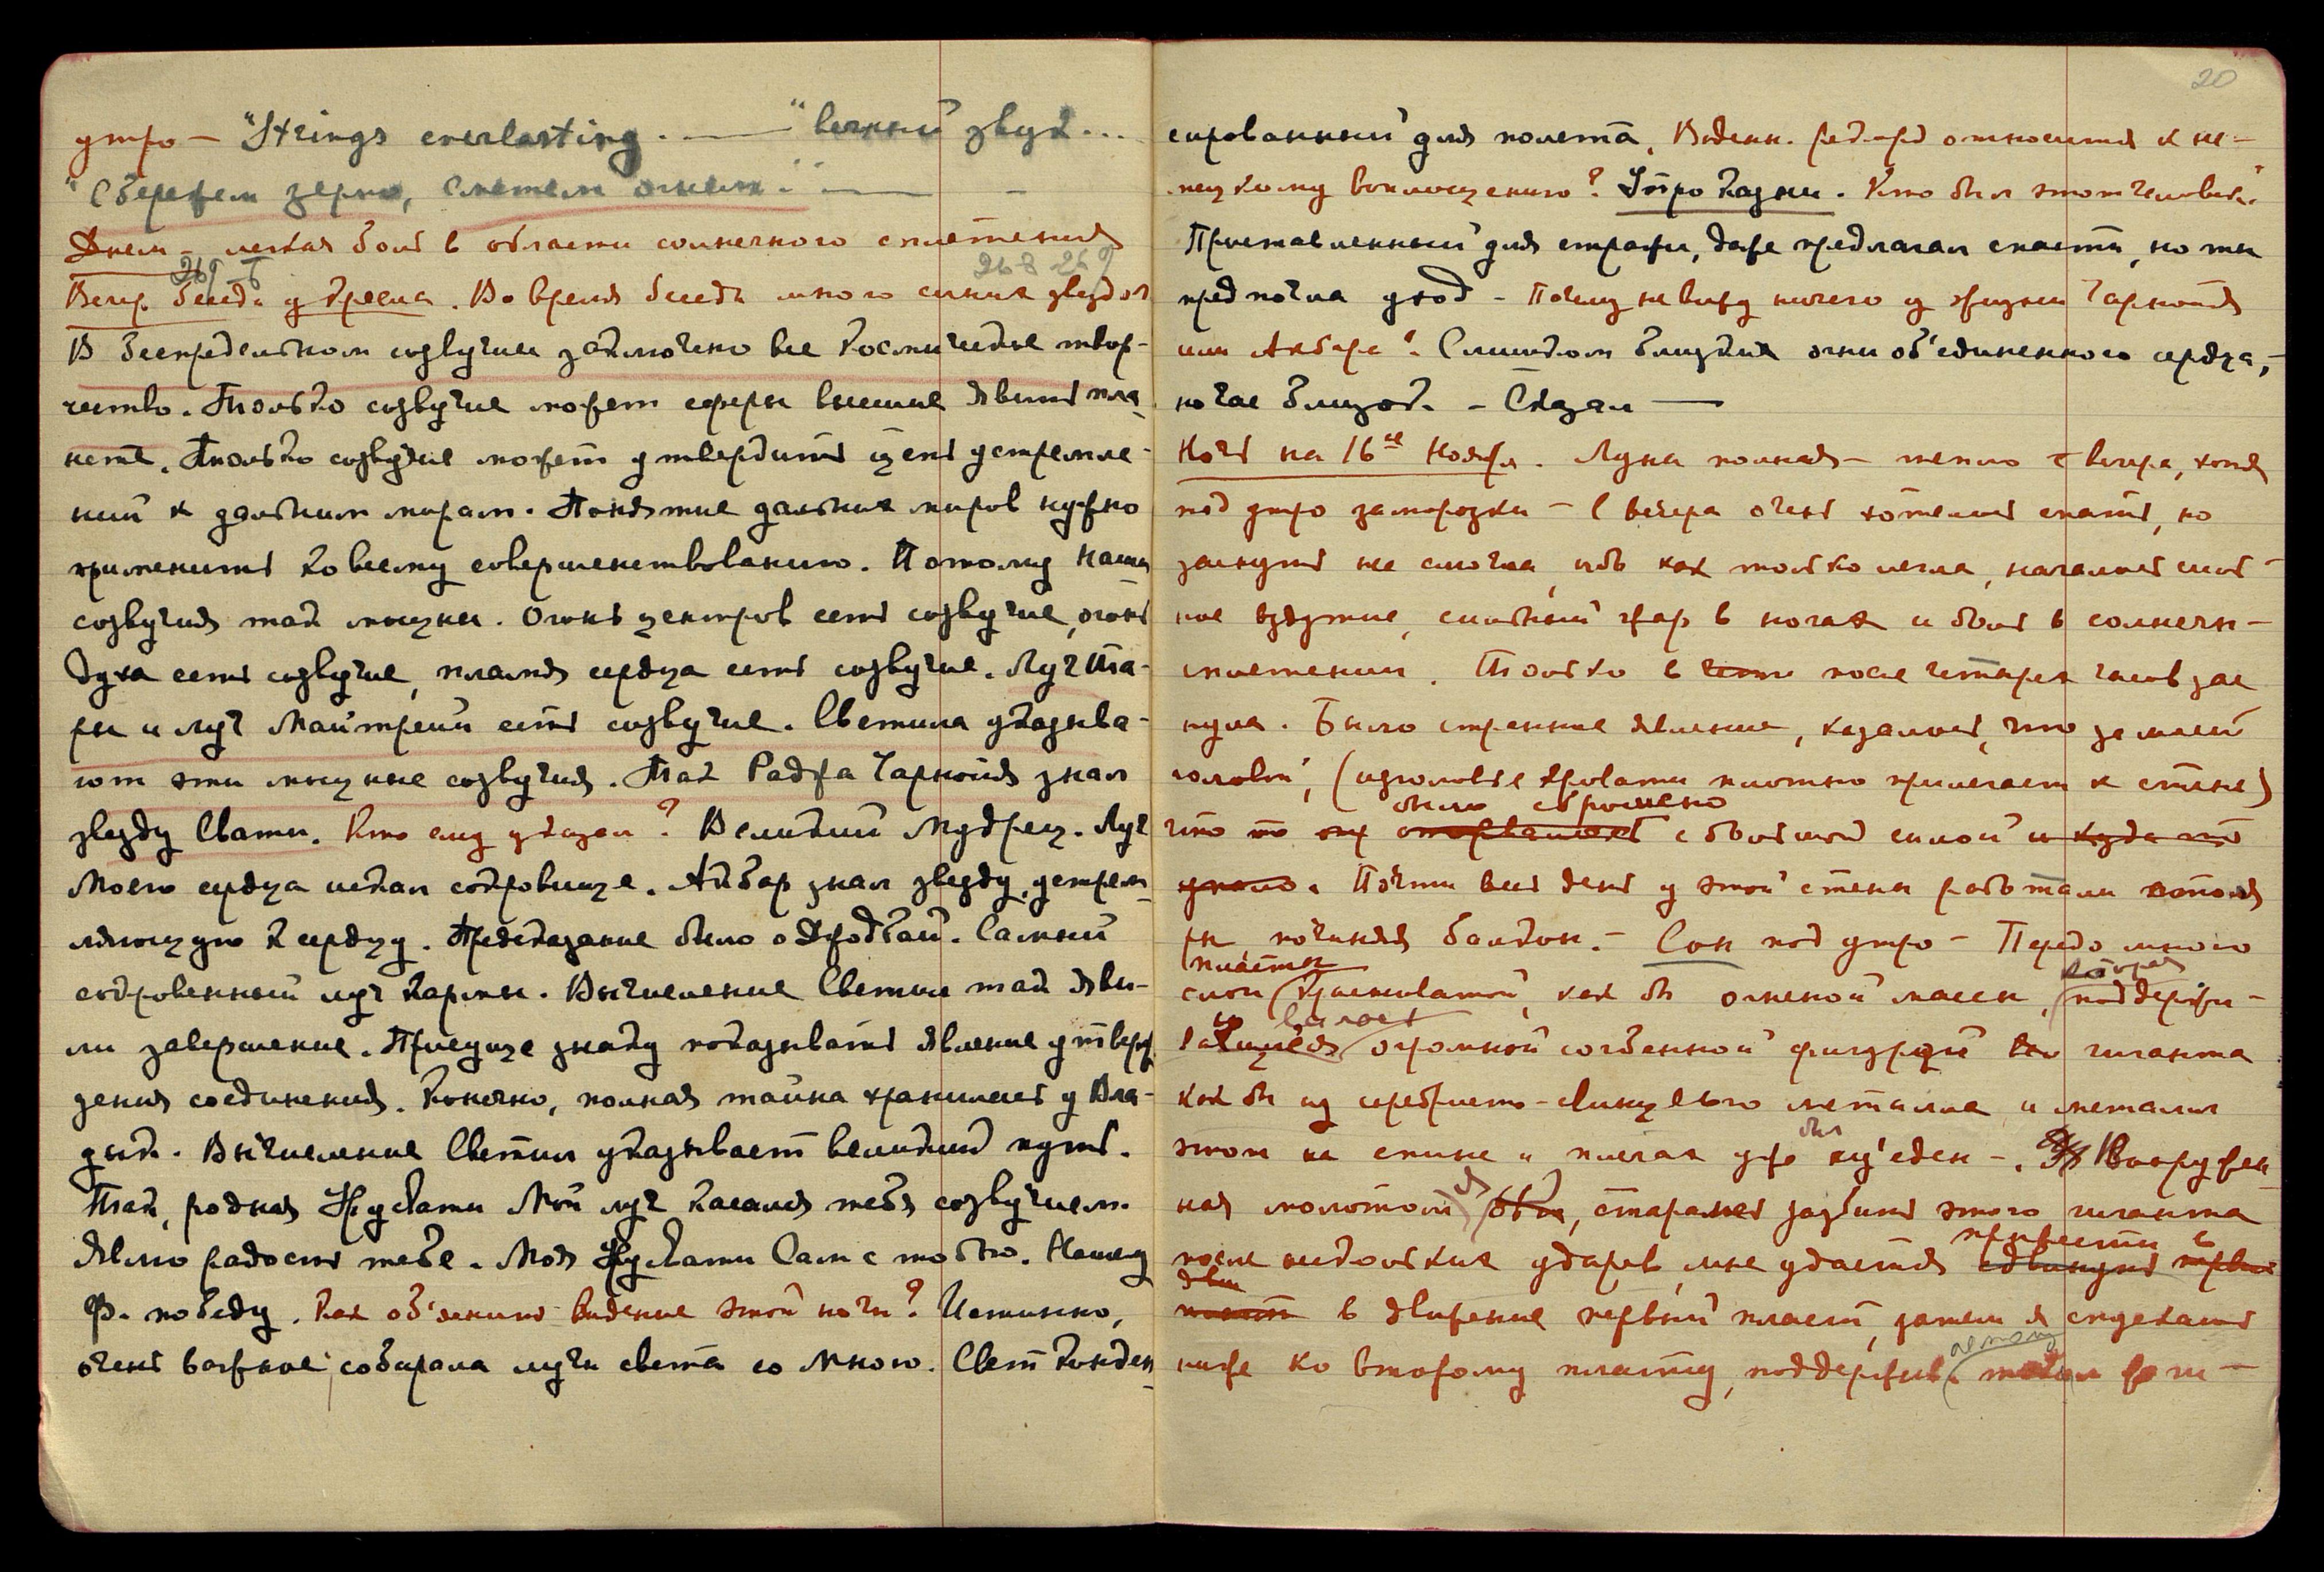 утро — "Strings everlasting. — "вечный звук...
"Сбережем зерно, сметем огнем." — –
Днем – легкая боль в области солнечного сплетения
269 268 269
Вечер. Беседа у кресла. Во время беседы много синих звездоч
В Беспредельном созвучии заключено все космическое твор-
чество. Только созвучие может сферы высшие явить пла-
нете. Только созвучие может утвердить цепь устремле-
ний к дальним мирам. Понятие дальних миров нужно
применить ко всему совершенствованию. Потому наши
созвучия так мощны. Огонь центров есть созвучие, огонь
духа есть созвучие, пламя сердца есть созвучие. Луч Та-
ры и луч Майтрейи есть созвучие. Светила указыва-
ют эти мощные созвучия. Так Раджа Чарнойя знал
звезду Свати. Кто ему указал? Великий Мудрец. Луч
Моего сердца искал сокровище. Акбар знал звезду, устрем-
ляющую к сердцу. Предсказание было о Джодбай. Самый
сокровенный луч Кармы. Вычисление Светил так яви-
ли завершение. Приедище знаку показывать явление утверж
дения соединения. Конечно, полная тайна хранилась у Вла-
дык. Вычисление Светил указывает великий путь.
Так, родная Урусвати Мой луч касался тебя созвучием.
Явлю радость тебе. Моя Урусвати Сам с тобою. Нашему
Ф. победу. Как об'яснить видение этой ночи? Истинно,
очень важное, собирала лучи света со Мною. Свет конден
20
сированный для полета. Виденн. относится к не-
мецкому воплощению? Утро казни. Кто был этот человек?
Приставленный для стражи, даже предлагал спасти, но ты
предпочла уход – Почему не вижу ничего из жизни Чарнойя
или Акбара? Слишком близкия огни об'единенного сердца,–
но час близок. – Сказал —
Ночь на 16ое Ноября. Луна полная – тепло с вечера, хотя
под утро заморозки – С вечера очень хотелось спать, но
заснуть не смогла, ибо как только легла, началось силь-
ное вздутие, сильный жар в ногах и боль в солнечн–
сплетении. Только в после четырех часов зас
нула. Было странное явление, казалось, что за моей
головой, (изголовье кровати плотно прилегает к стене)
было сброшено
что то с большой силой и куда то
упало. Почти весь день у этой стены работали
ры починяя балкон. – Сон под утро – Передо мною
пласты
слои красноватой, как бы огненой массы, поддержи–
огромной согбенной фигурой гиганта
как бы из серебристо-свинцового металла и металл
был
этот на спине и плечах уже из'еден –. Вооружен
ная молотом, стараюсь разбить этого гиганта
привести в
после нескольких ударов мне удается сдвинуть
движ
в движение первый пласт, затем я спускаюсь
ниже ко второму пласту,